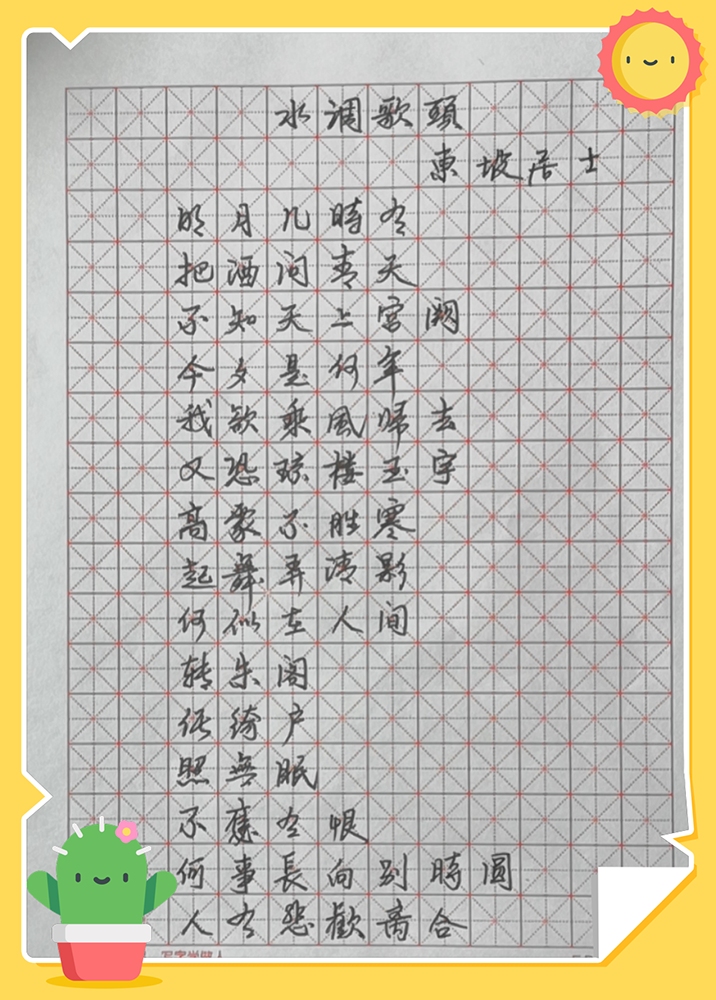 水调歌頭
東坡居士
明月几時有
把酒问青天
不知天上宫阙
今夕是何年
我欲乘風歸去
又恐琼楼玉宇
高處不胜寒
起舞弄清影
何似在人间
转朱阁
低绮户
照無眠
不應有恨
何事長向别時圓
人有悲歡离合